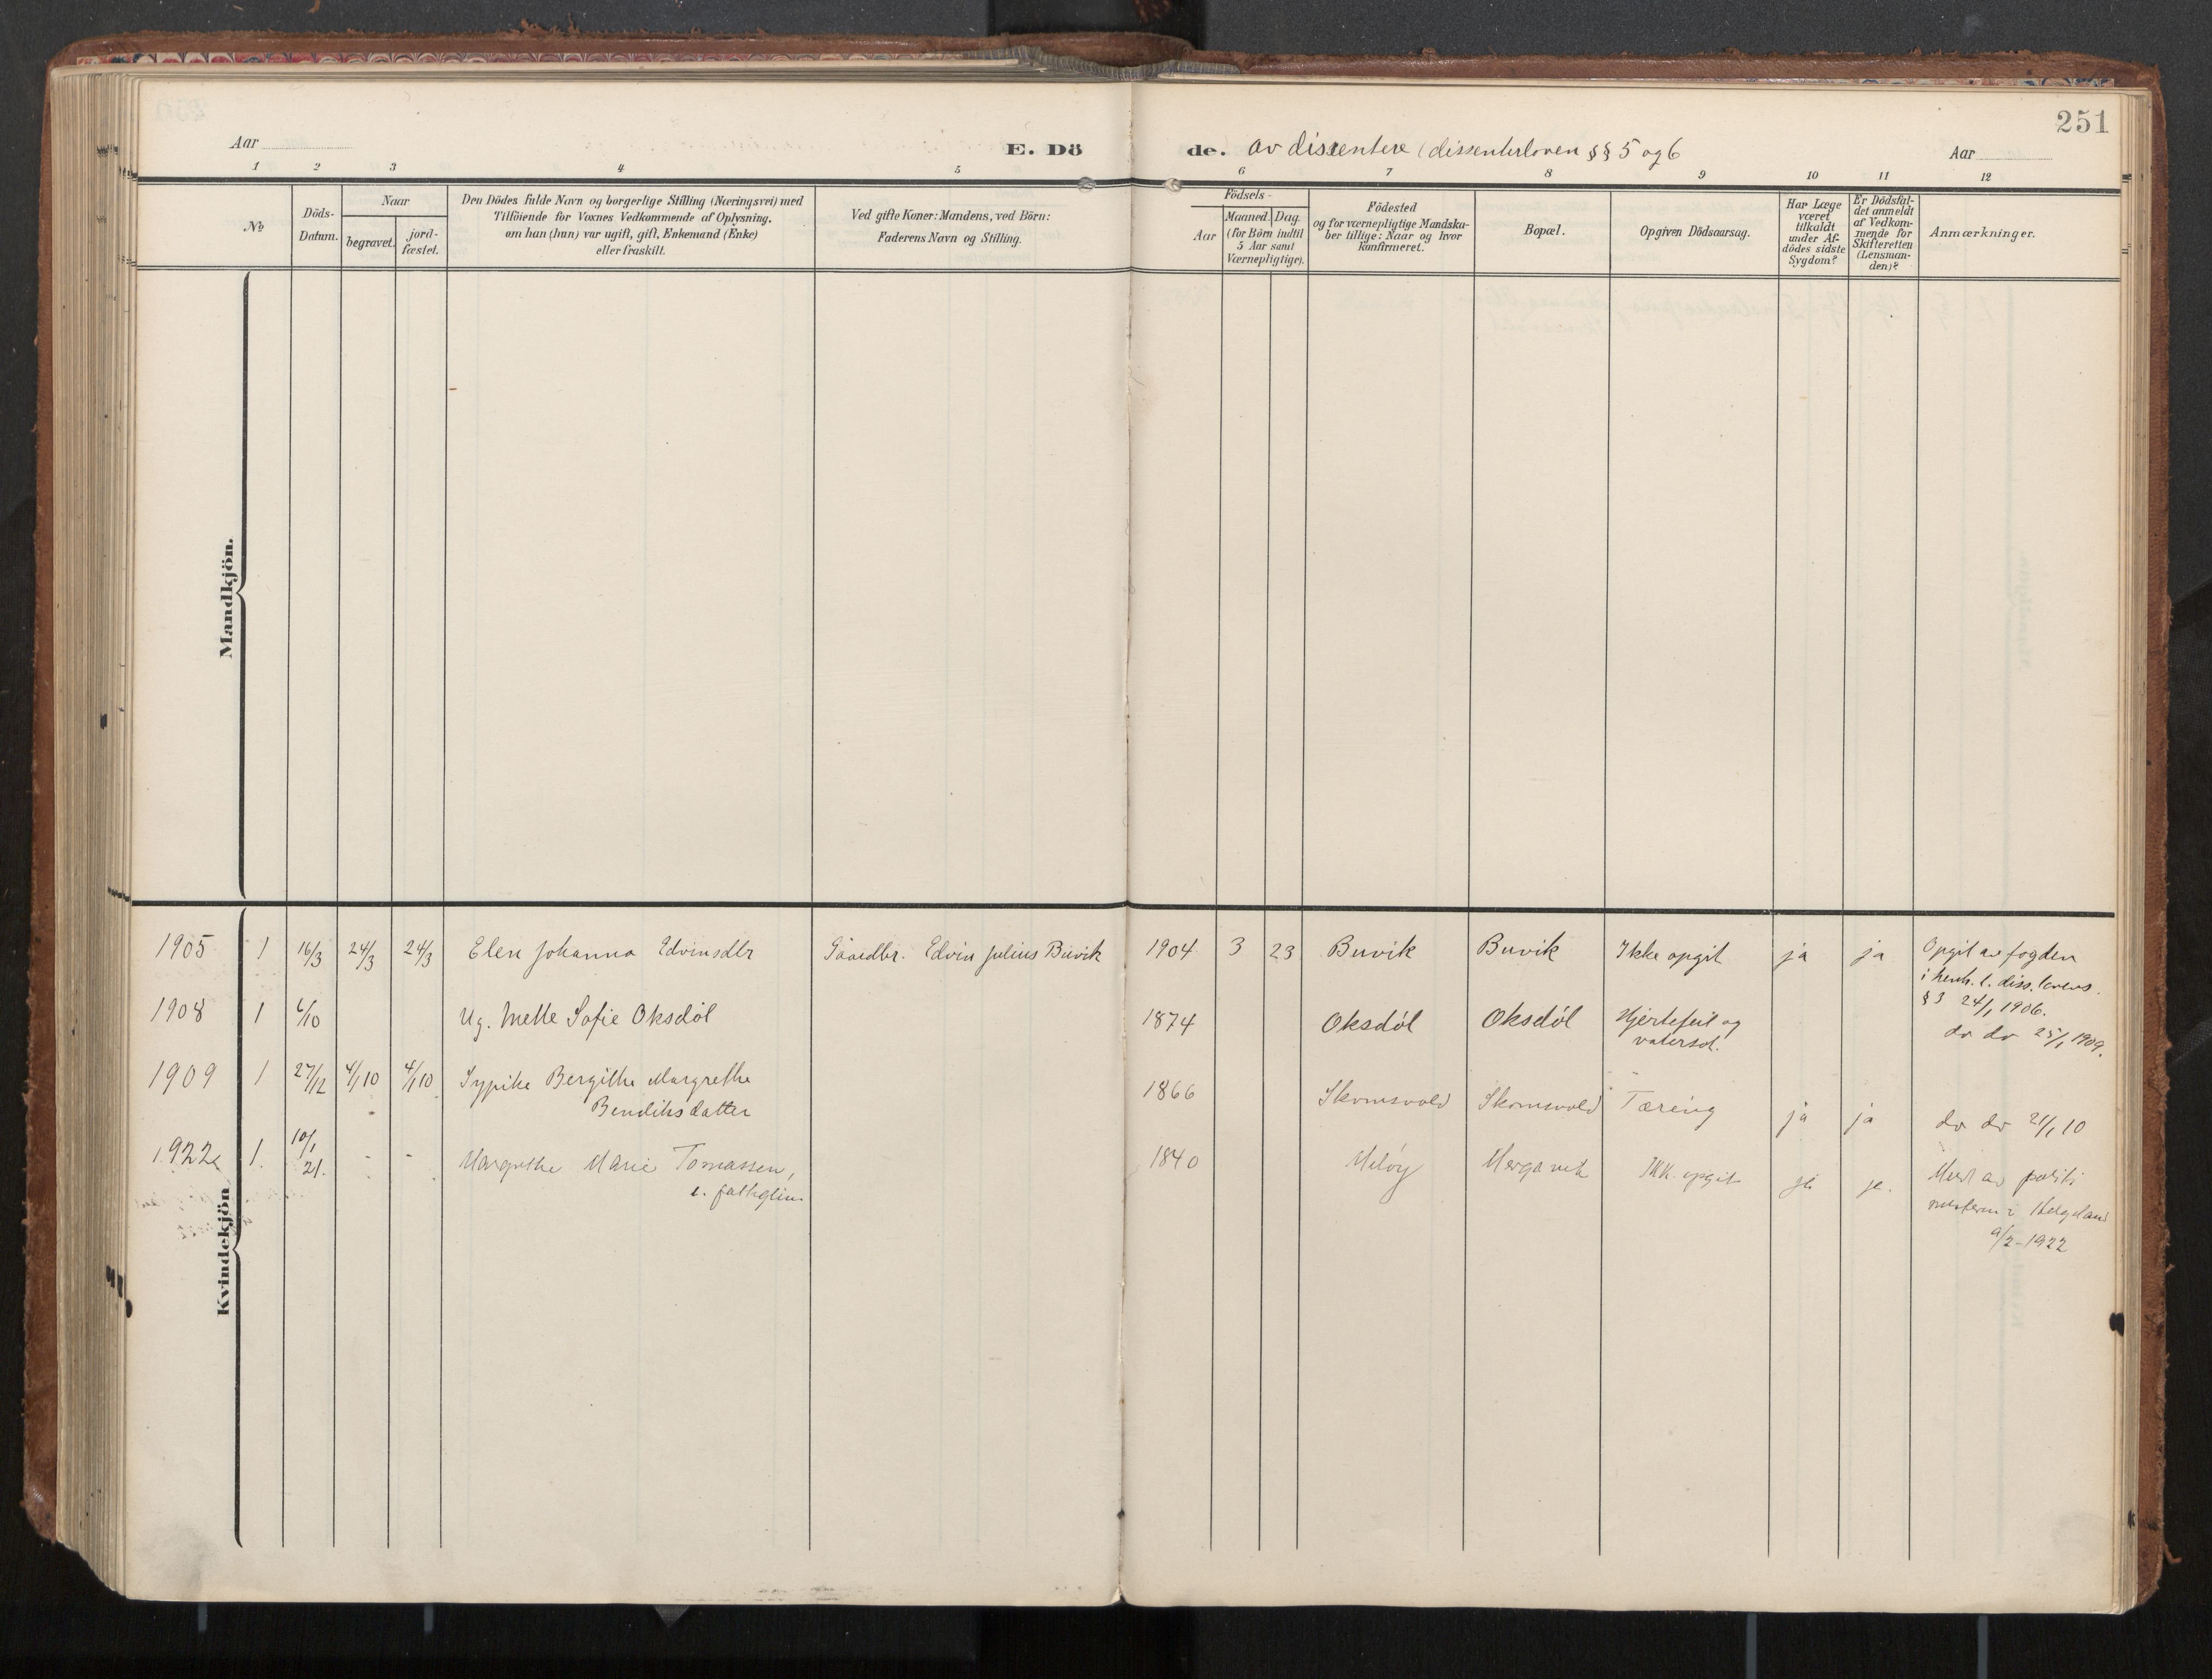 251
Aar
E. Döde. av dissentere (dissenterloven §§ 5 og 6
Aar
1 2 3 4 5 6 7 8 9 10 11 12
No
Döds-Datum.
Naar
begravet.
jord-fæstet.
Den Dödes fulde Navn og borgerlige Stilling (Næringsvei) med
Tilföiende for Voxnes Vedkommende af Oplysning,
om han (hun) var ugift, gift, Enkemand (Enke)
eller fraskilt.
Ved gifte Koner: Mandens, ved Börn:
Faderens Navn og Stilling.
Födsels-
Aar
Maaned. Dag.
(for Börn indtil
5 Aar samt
Værnepligtige).
Födested
og for værnepligtige Mandska-
ber tillige: Naar og hvor
konfirmeret.
Bopæl.
Opgiven Dödsaarsag.
Har Læge
været
tilkaldt
under Af-
dödes sidste
Sygdom?
Er Dödsfal-
det anmeldt
af Vedkom-
mende for
Skifteretten
(Lensman-
den)?
Anmærkninger.
Mandkjön.
Kvindekjön
1905 1 16/3 24/3 24/3 Elen Johanna Edvinsdtr Gaardbr. Edvin Julius Buvik 1904 3 23 Buvik Buvik Ikke opgit ja ja Opgit av fogden
i henh. t. diss. lovens
§ 3 24/1 1906.
1908 1 6/10 Ug. Mette Sofie Oksdól 1874 Oksdól Oksdól Hjertefeil og
vatersot.
do do 25/1 1909.
1909 1 27/12 4/1 10 4/1 10 Sypike Bergithe Margrethe
Bendiksdatter
1866 Skomsvold Skomsvold Tæring ja ja do do 21/1 10
1922 1. 10/1
21. - - Margrethe Marie Tomassen,
e. fattiglem
1840 Melöy IKK. opgit ja ja. av politi
Helgeland
9/2-1922